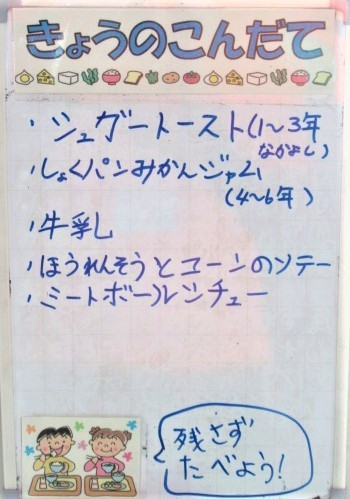 きょうのこんだて
・シュガートースト(1〜3年
なかよし)
・しょくパンみかんジャム
(4〜6年)
・牛乳
・ほうれんそうとコーンのソテー
・ミートボールシチュー
残さず
たべよう!